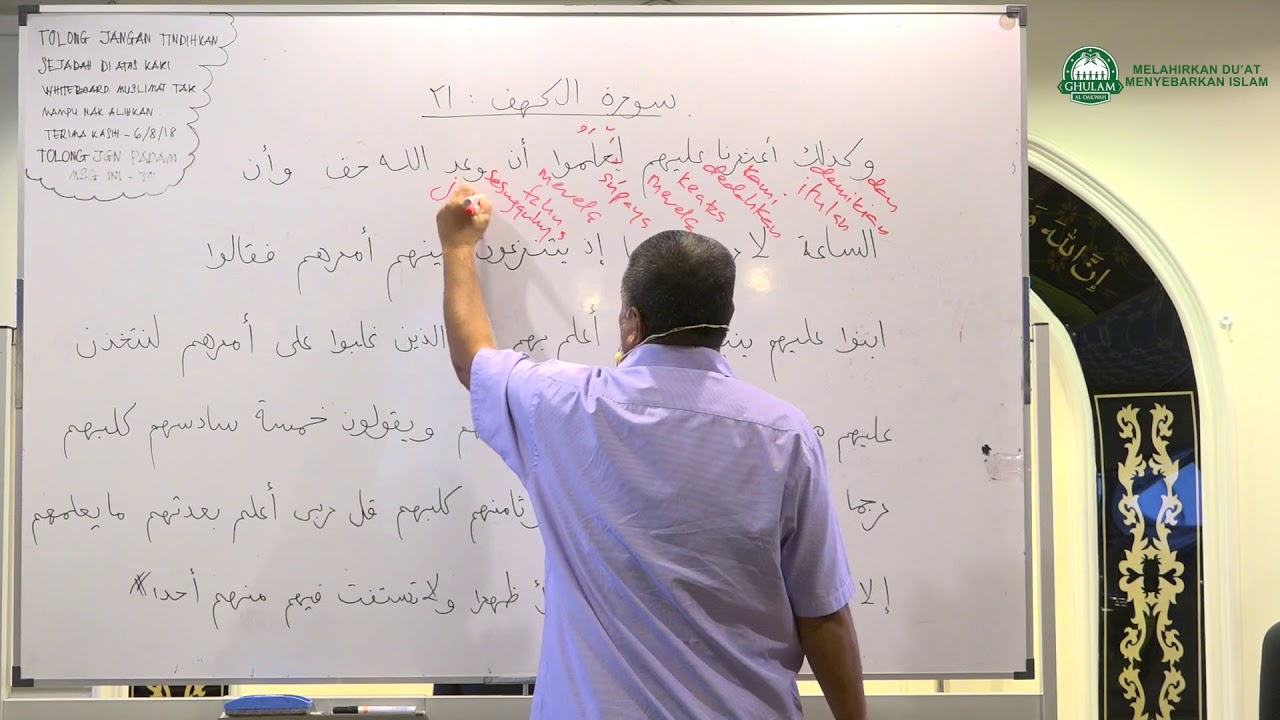 TOLONG JANGAN TINDIHKAN
SEJADAH DI ATAS KAKI
WHITEBOARD. MUSLIMAT TAK
MAMPU NAK ALIHKAN
TERIMA KASIH - 6/8/18
TOLONG JGN PADAM
MSG INI - TQ
GHULAM
AL-DAKWAH
MELAHIRKAN DU'AT
MENYEBARKAN ISLAM
سورة الكهف : ٢١
وكذلك أعثرنا عليهم ليعلموا أن وعد الله حق وأن
dan demikian itulah kami dedahkan keatas mereka supaya mereka tahu sesungguhnya
الساعة لا إذ يتنزعون بينهم أمرهم فقالوا
ابنوا عليهم أعلم بهم الذين غلبوا على أمرهم لنتخذن
عليهم ويقولون خمسة سادسهم كلبهم
رجما وثامنهم كلبهم قل ربى أعلم بعدتهم ما يعلمهم
إلا ظهرا ولا تستفت فيهم منهم أحدا
إن الله